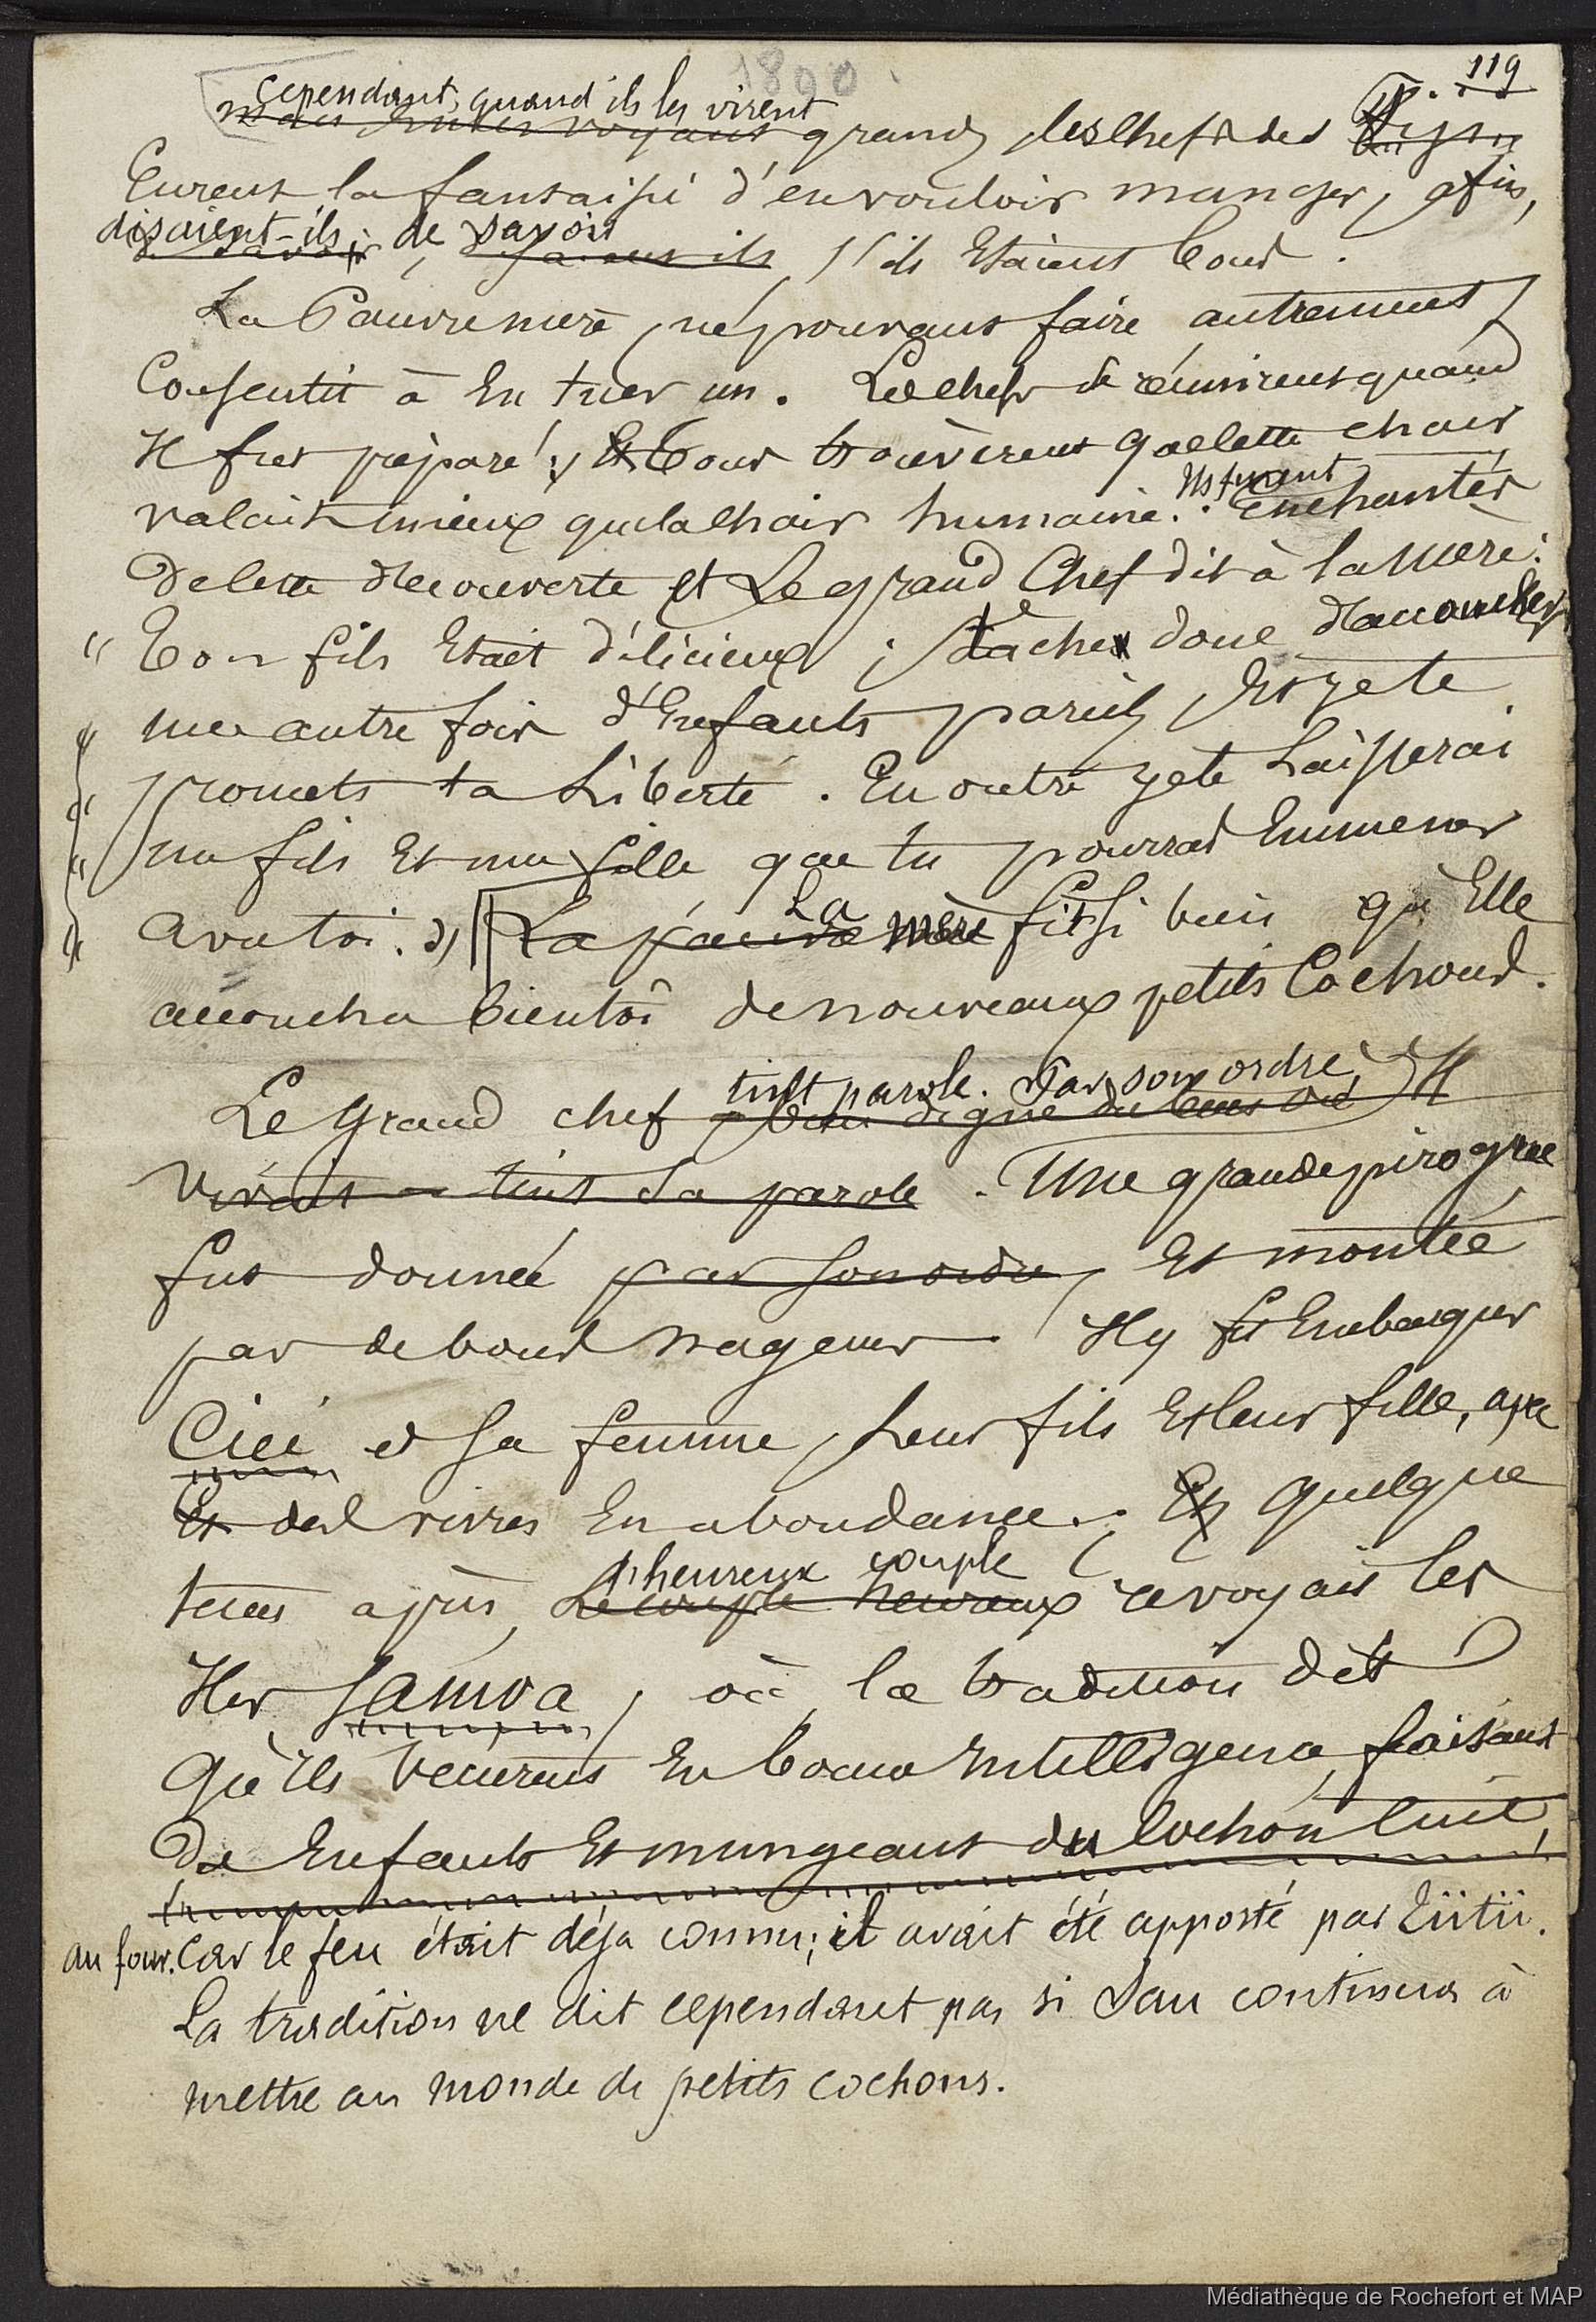 1890
119
cependant, quand ils les virent
grands les chefs des
Eurent la fantaisie d'en vouloir manger, afin,
disaient-ils, de savoir
s'ils Etaient bons.
La Pauvre mère, ne pouvant faire autrement,
Consentit à En tuer un. Les chefs se réunirent quand
Il fut préparé; Et tous trouvèrent que cette chair
Ils furent
valait mieux que la chair humaine. Enchantés
De cette découverte et Le grand Chef dit à la mère:
" Ton fils Etait délicieux; tâche donc d'accoucher
" une autre fois d'Enfants pareils Et je te
" promets ta Liberté. En outre je te Laisserai
" un fils Et une fille que tu pourras Emmener
" avec toi. " La pauvre La mère fit si bien qu'Elle
accoucha bientôt de nouveaux petits Cochons.
tint parole. Par son ordre
Le Grand chef
vivant tint sa parole. Une grande pirogue
fut donnée par son ordre, Et montée
par de bons nageurs. Il y fit Embarquer
Cici et sa femme, Leur fils Et leur fille, avec
Et des vivres En abondance. Et quelque
l'heureux couple
temps après, Le couple heureux revoyait les
Iles Samoa, où la tradition dit
Qu'ils vécurent En bonne intelligence, faisant
Des Enfants Et mangeant du Cochon Cuit,
au four. Car le feu était déja connu; il avait été apporté par Tiitii.
La tradition ne dit cependant pas si Sau continua à
mettre au monde de petits cochons.
Médiathèque de Rochefort et MAP